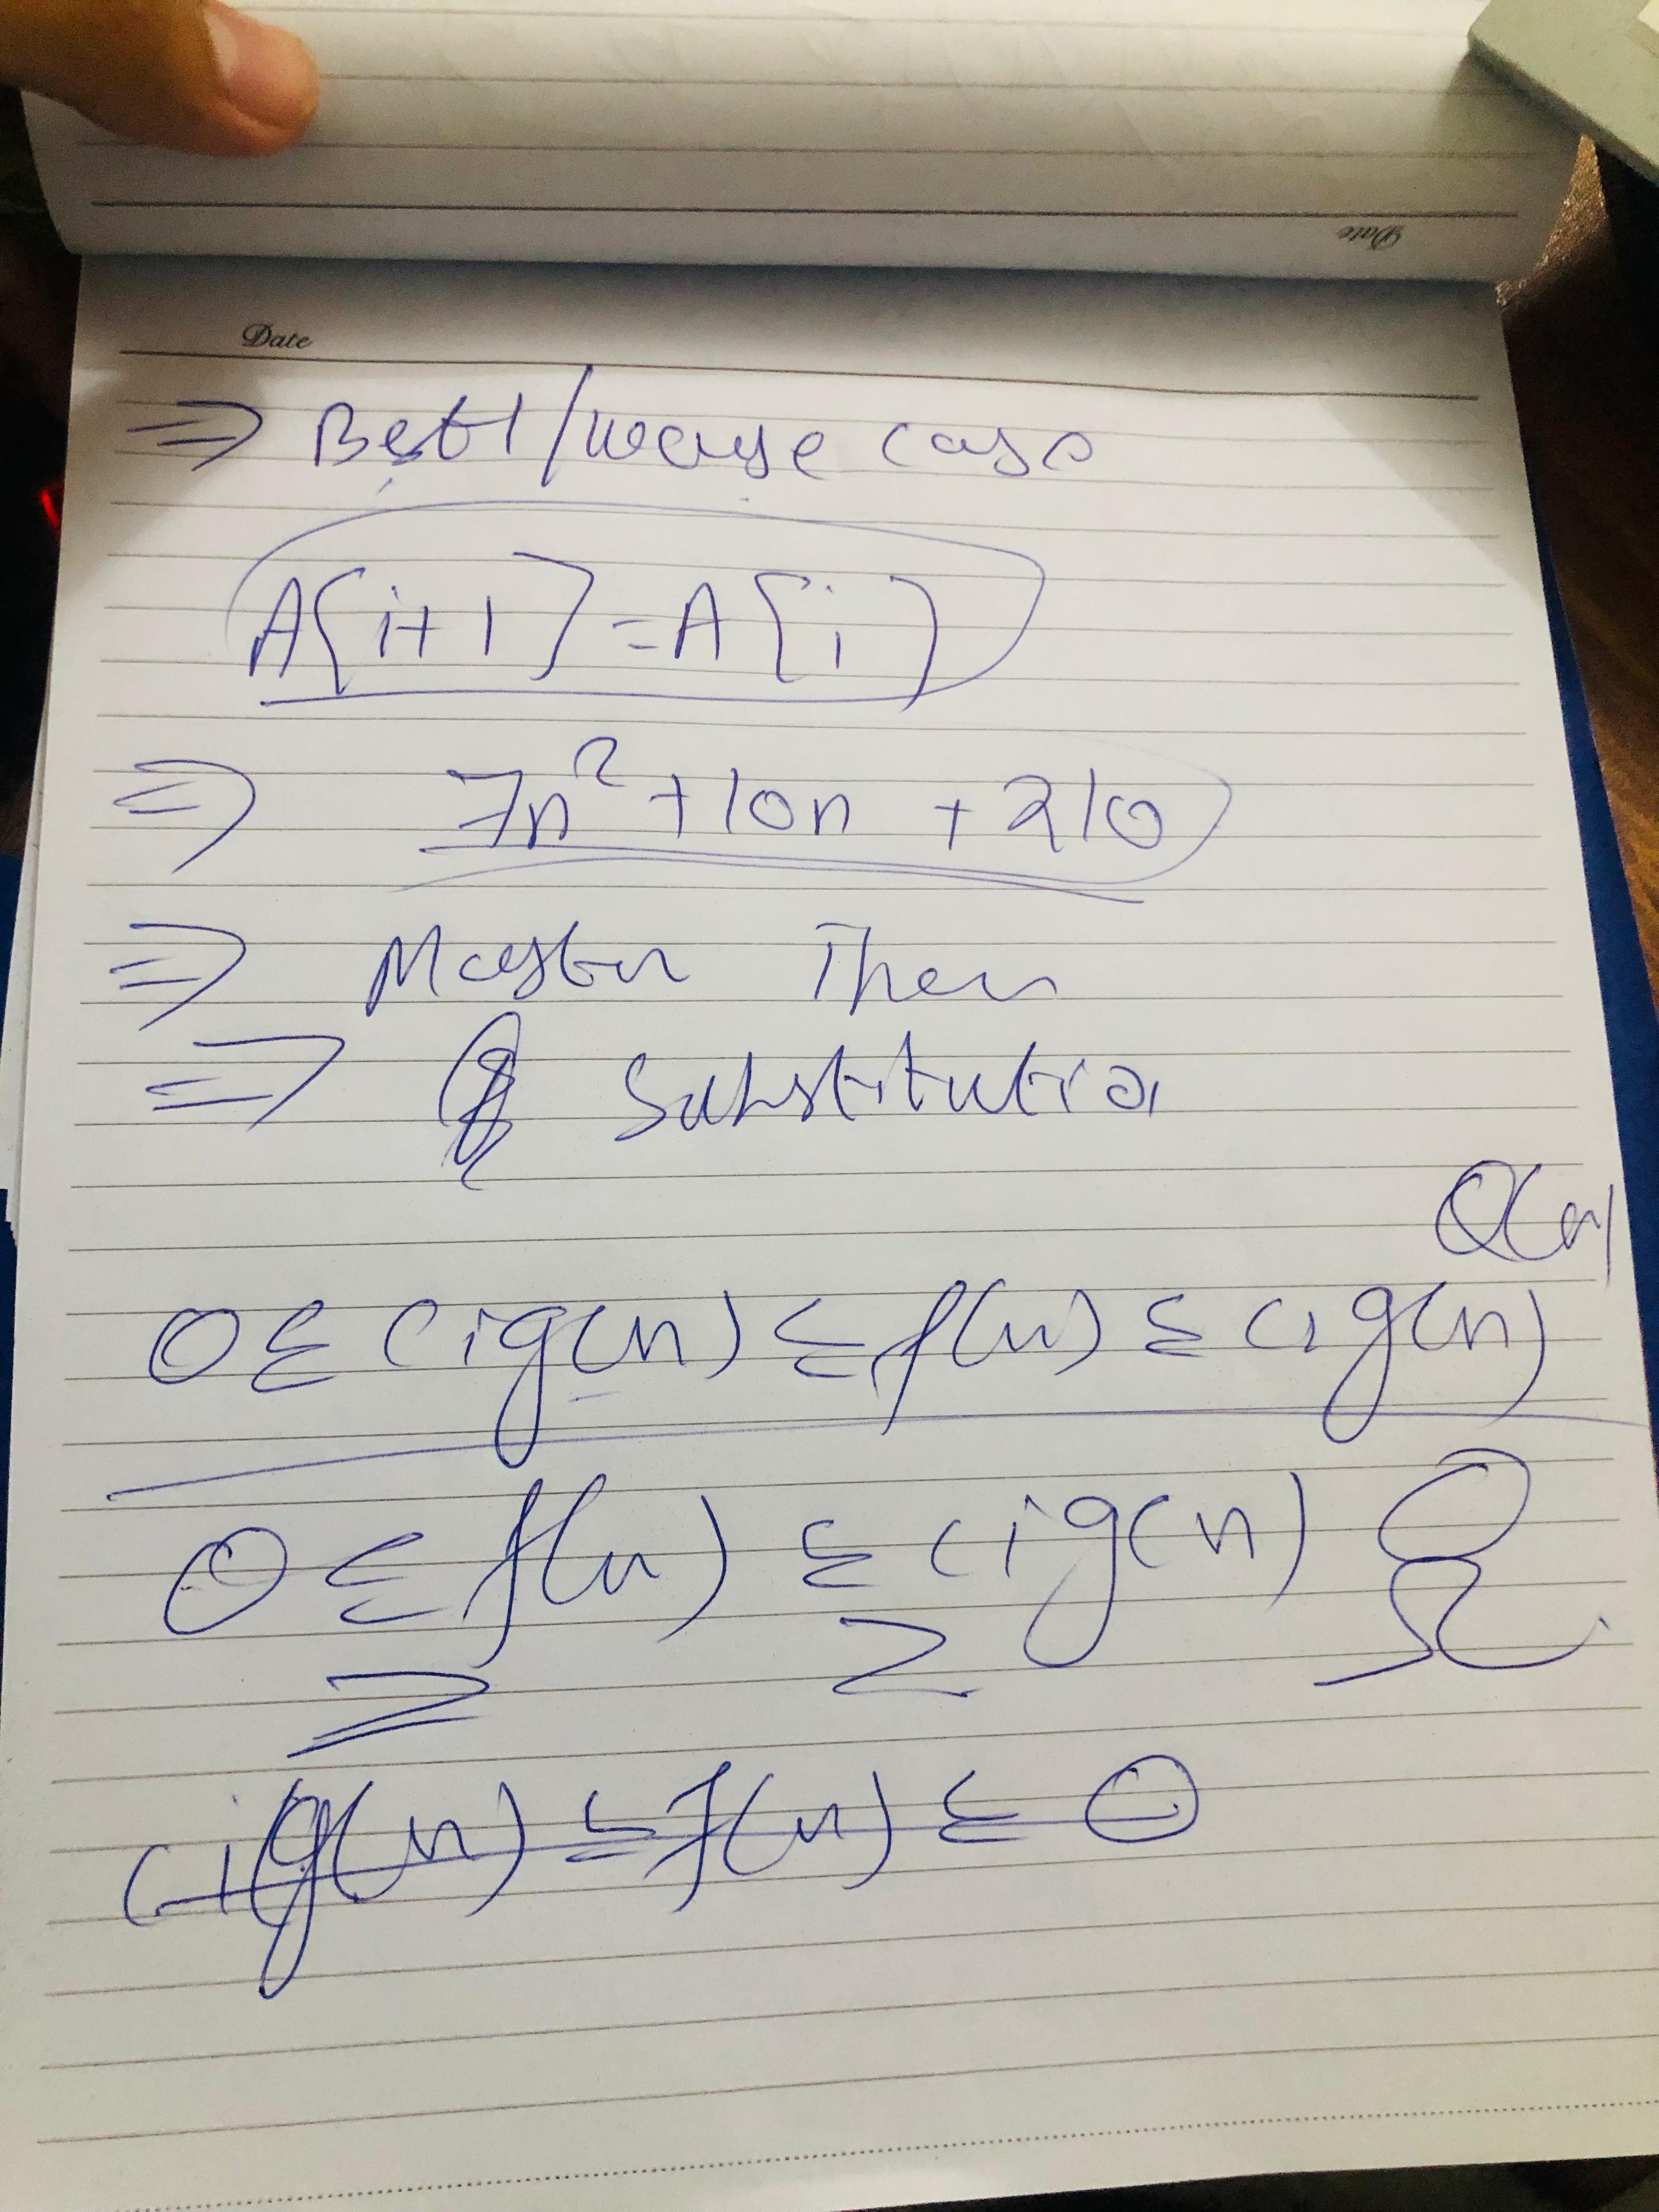 Date
Date
⇒ Best/worse case
A[i+1] = A[i]
⇒ 7n² + 10n + 210
⇒ Master Theo
⇒ Substitution
Θ(n)
0 ≤ c1g(n) ≤ f(n) ≤ c1g(n)
0 ≤ f(n) ≤ c1g(n) Ω
≥ ≥
c1g(n) ≤ f(n) ≤ 0